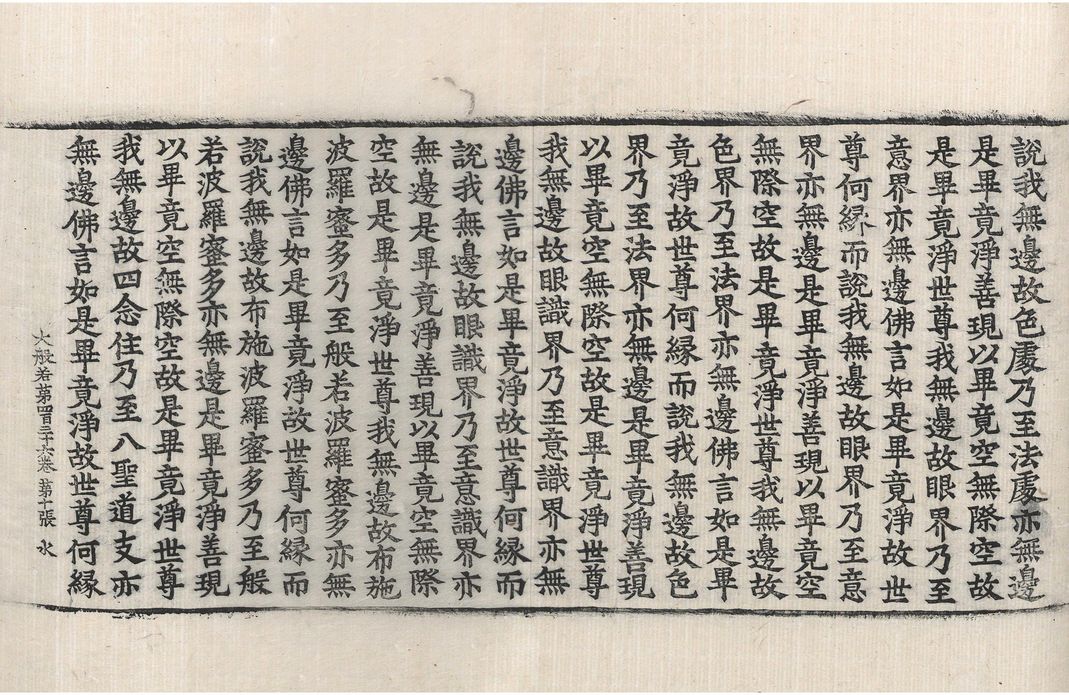 說我無邊故色處乃至法處亦無邊
是畢竟淨善現以畢竟空無際空故
是畢竟淨世尊我無邊故眼界乃至
意界亦無邊佛言如是畢竟淨故世
尊何縁而說我無邊故眼界乃至意
界亦無邊是畢竟淨善現以畢竟空
無際空故是畢竟淨世尊我無邊故
色界乃至法界亦無邊佛言如是畢
竟淨故世尊何縁而說我無邊故色
界乃至法界亦無邊是畢竟淨善現
以畢竟空無際空故是畢竟淨世尊
我無邊故眼識界乃至意識界亦無
邊佛言如是畢竟淨故世尊何縁而
說我無邊故眼識界乃至意識界亦
無邊是畢竟淨善現以畢竟空無際
空故是畢竟淨世尊我無邊故布施
波羅蜜多乃至般若波羅蜜多亦無
邊佛言如是畢竟淨故世尊何縁而
說我無邊故布施波羅蜜多乃至般
若波羅蜜多亦無邊是畢竟淨善現
以畢竟空無際空故是畢竟淨世尊
我無邊故四念住乃至八聖道支亦
無邊佛言如是畢竟淨故世尊何縁
大般若第四百三十六卷 第十張 水